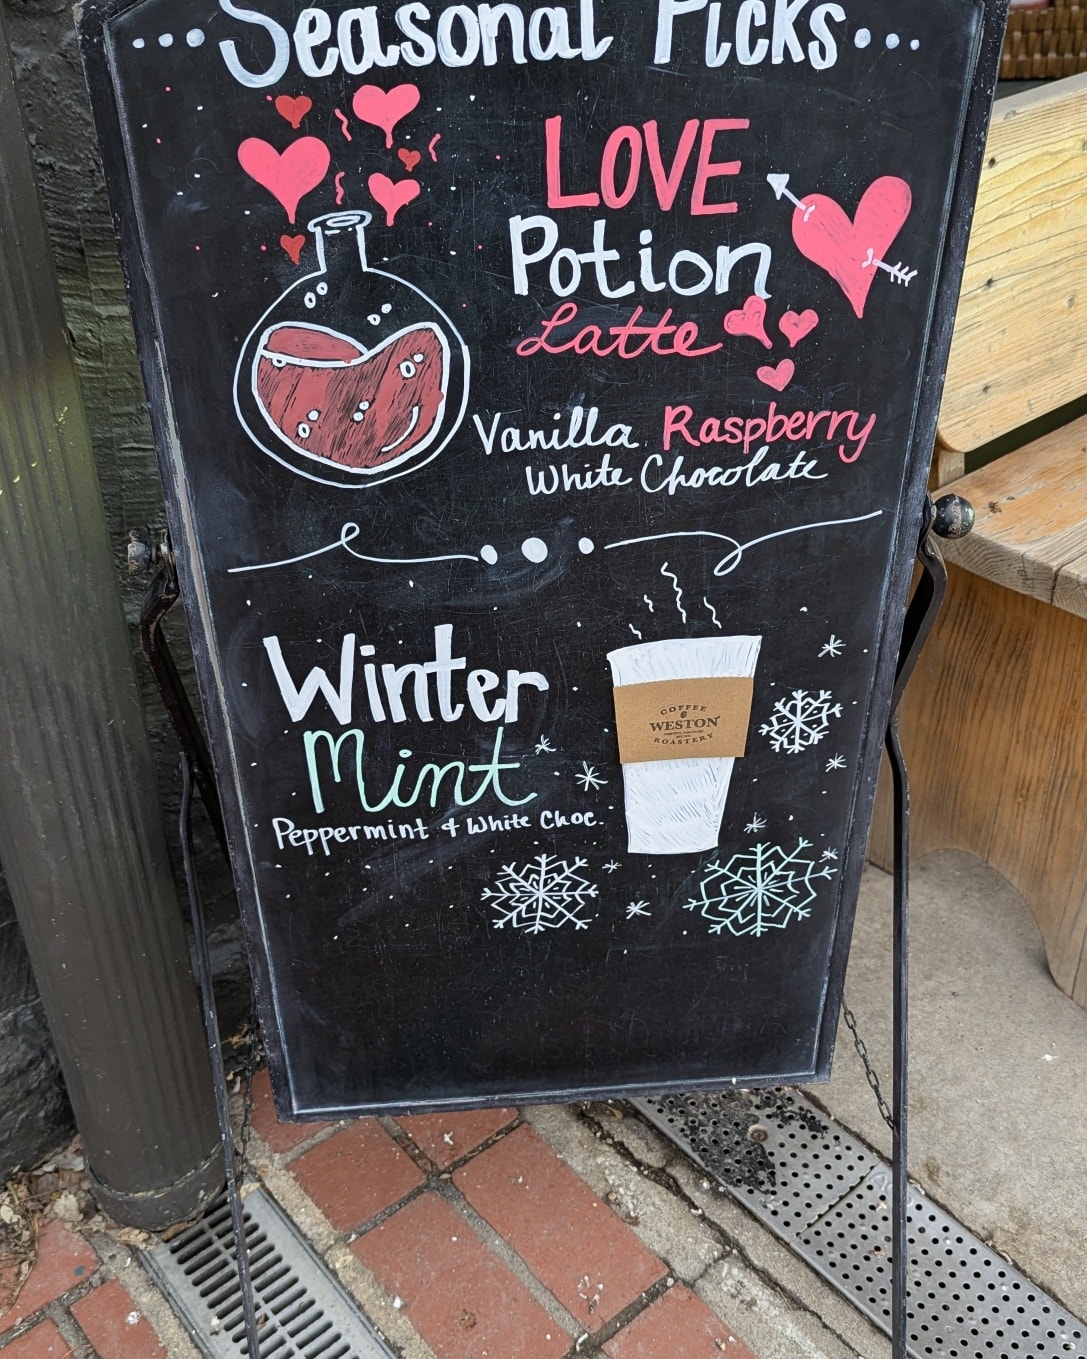 ...Seasonal Picks...
LOVE
Potion
Latte
Vanilla Raspberry
White Chocolate
Winter
Mint
Peppermint & White Choc.
COFFEE
WESTON
ROASTERY